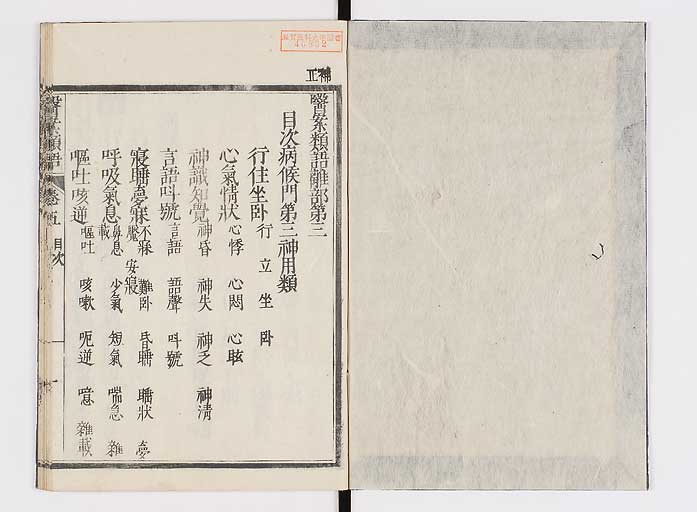 補正
醫案類語離部第三
目次病候門第三神用類
行住坐卧 行 立 坐 卧
心氣情狀 心悸 心悶 心眩
神識知覺 神昏 神失 神乏 神清
言語呌號 言語 語聲 呌號
寢寤夢寐 不寐 安寢 難卧 昏睡 睡狀 夢
魘
呼吸氣息 鼻息 少氣 短氣 喘急 雜
載
嘔吐咳逆 嘔吐 咳嗽 呃逆 噫 雜載
醫案類語 卷五 目次 一